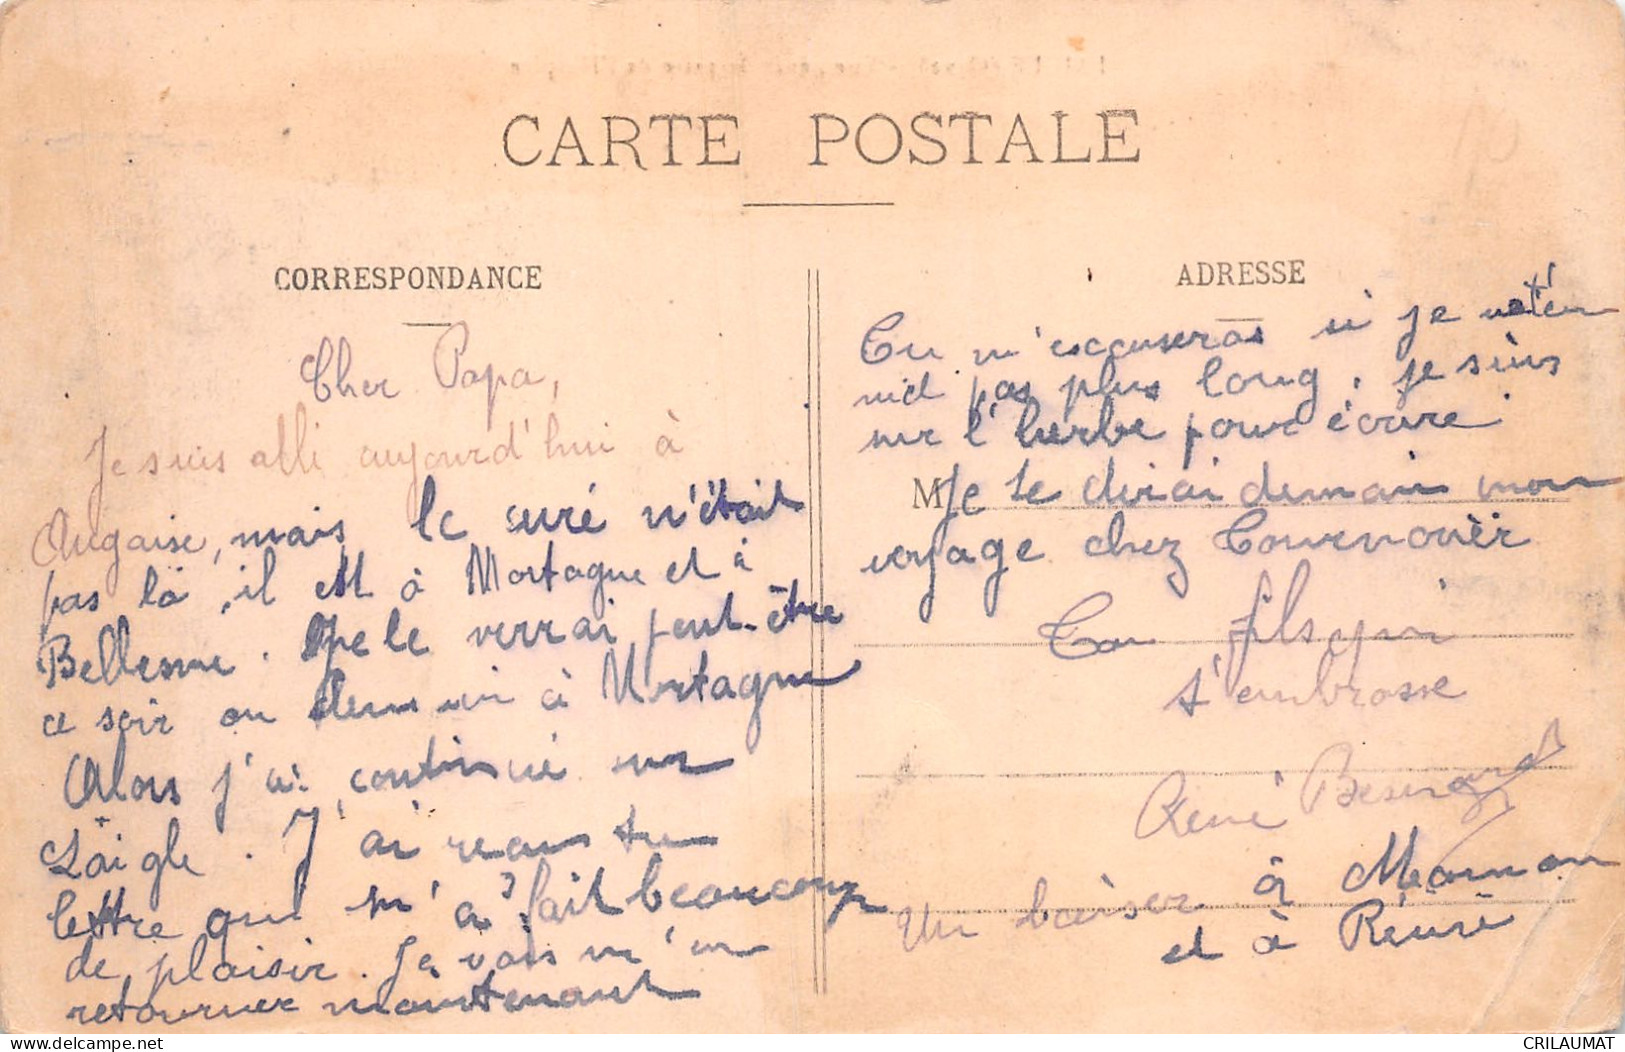 CARTE POSTALE
CORRESPONDANCE
Cher Papa,
Je suis allé aujourd'hui à
Augaise, mais le curé n'était
pas là, il est à Mortagne et à
Bellesme. Je le verrai peut-être
ce soir ou demain à Mortagne
Alors j'ai continué sur
L'aigle. J'ai reçu ta
lettre qui m'a fait beaucoup
de plaisir. Je vais m'en
retourner maintenant
ADRESSE
Tu m'escuseras si je
pas plus long, je suis
sur l'herbe pour écrire
M Je te dirai demain mon
voyage chez Tournouër
Ton fils qui
t'embrasse
René Besnard
Un baiser à Maman
et à Renée
CRILAUMAT